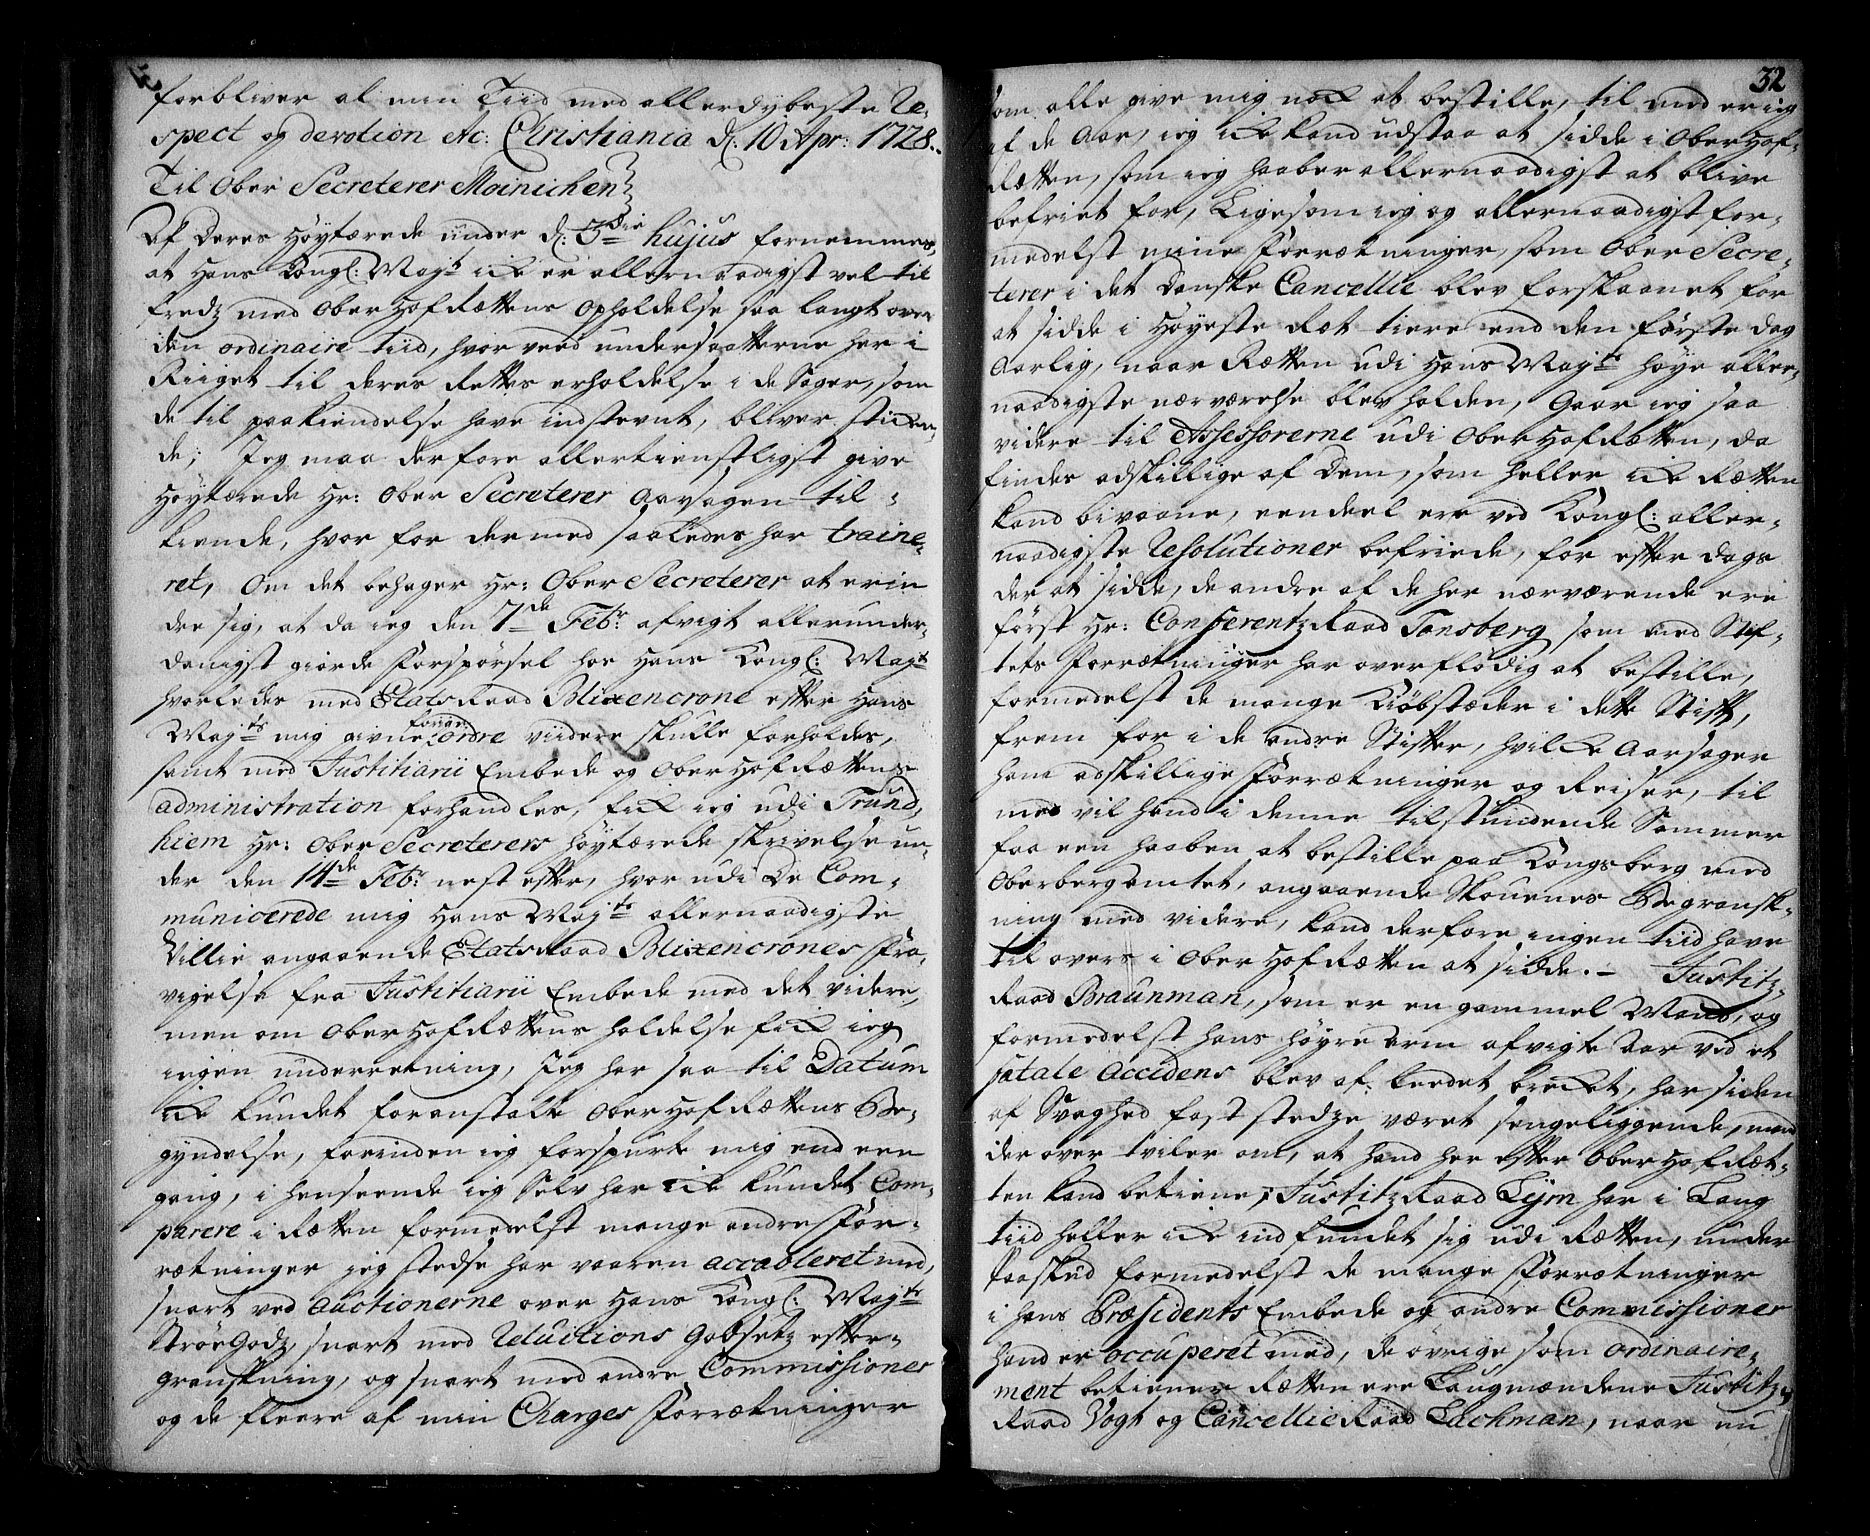 forbliver al min Tiid med allerdybeste Re-
spect og devotion etc: Christiania d: 10 Apr: 1728.
Til Ober Secreterer Möinichen
Af Deres Höyærede under d: 3die hujus fornemmes,
at Hans Kongl: Mayt icke er allernaadigst vel til
fredz med Ober Hof Rættens opholdelse saa langt over
den ordinaire tiid, hvor ved undersaatterne her i
Riiget til deres Rettes erholdelse i de Sager, som
de til paakiendelse have indstevnt, bliver
de; Jeg maa derfore allertienstligst give
Höyærede Hr: Ober Secreterer Aarsagen til-
kiende, hvor for dermed saaledes har traine-
ret, Om det behager Hr: Ober Secreterer at erin
dre sig, at da ieg den 7de Febr: afvigt allerunder-
danigst giorde Forspörsel hos Hans Kongl: Mayt
hvorledes med Etats Raad Blixencrone efter Hans
Mayts mig givne forige ordre viidere skulle forholdes,
samt med Justitiarii Embede og Ober Hof Rættens
administration forhandles, fick ieg udi Trund-
hiem Hr: Ober Secreterers höyærede skrivelse un-
der den 14de Febr: nest efter, hvor udi De Com-
municerede mig Hans Mayts allernaadigste
Villie angaaende Etats Raad Blixencrones Fra-
vigelse fra Justitiarii Embede med det videre,
men om Ober Hof Rættens holdelse fick ieg
ingen underretning, Jeg har saa til Datum
icke kundet foranstalte Ober Hof Rættens Be-
gyndelse, forinden ieg forspurte mig end een
gang, i henseende ieg Selv har icke kundet Com-
parere i Rætten formedelst mange andre For-
rætninger jeg stedse har vaaren accableret med,
snart ved Auctionerne over Hans Kongl: Mayts
StröeGodz, snart med Reluitions efter-
granskning, og snart med andre Commissioner
og de fleere af min Charges Forrætninger
32
som alle give mig nock at bestille, til med er ieg
af de Aar, ieg icke kand udstaa at sidde i Ober Hof-
Rætten, som ieg haaber allernaadigst at blive
befriet for, Ligesom ieg og allernaadigst for-
medelst mine Forrætninger, som Ober Secre-
terer i det Danske Cancellie blev forskaanet for
at sidde i Höyeste Ret tiere end den förste dag
Aarlig, naar Rætten udi Hans Mayts höye aller-
naadigste nærværelse blev holden, Gaar ieg saa
videre til Assessorerne udi Ober Hof Rætten, da
findes adskillige af Dem, som heller icke Rætten
kand bivaane, eendeel ere ved Kongl: aller-
naadigste Resolutioner befriede, for efter dags
der at sidde, de andre af de her nærværende ere
först Hr: Conferentz Raad Tonsberg som med Stif-
tets Forrætninger har overflödig at bestille,
formedelst de mange Kiöbstæder i dette Stift,
frem for i de andre Stifter, hvilcke Aarsager
ham adskillige Forrætninger og Reiser, til
med vil hand i denne tilstundende Sommer
faa een haaben at bestille paa Kongsberg med
Oberbergamtet, angaaende Skovenes Begransk-
ning med videre, kand derfore ingen tiid have
til overs i Ober Hof Rætten at sidde. - Justitz-
Raad Braunman, som er en gammel Mand, og
formedelst hans höyre arm afvigte Aar ved et
fatale Accidens blev af leedet breckt, har siden
af Svaghed fast stedze været sengeliggende, mand
der over tviler om, at hand her efter Ober Hof Ræt-
ten kand betiene, Justitz Raad Leym har i Lang
tiid heller icke indfundet sig udi Rætten, under
Paaskud formedelst de mange Forrætninger
i hans Præsidents Embede og andre Commissioner
hand er occuperet med, de övrige som ordinaire-
ment betiener Rætten ere Laugmændene Justitz-
Raad Vogt og Cancellie Raad Lachman, naar nu